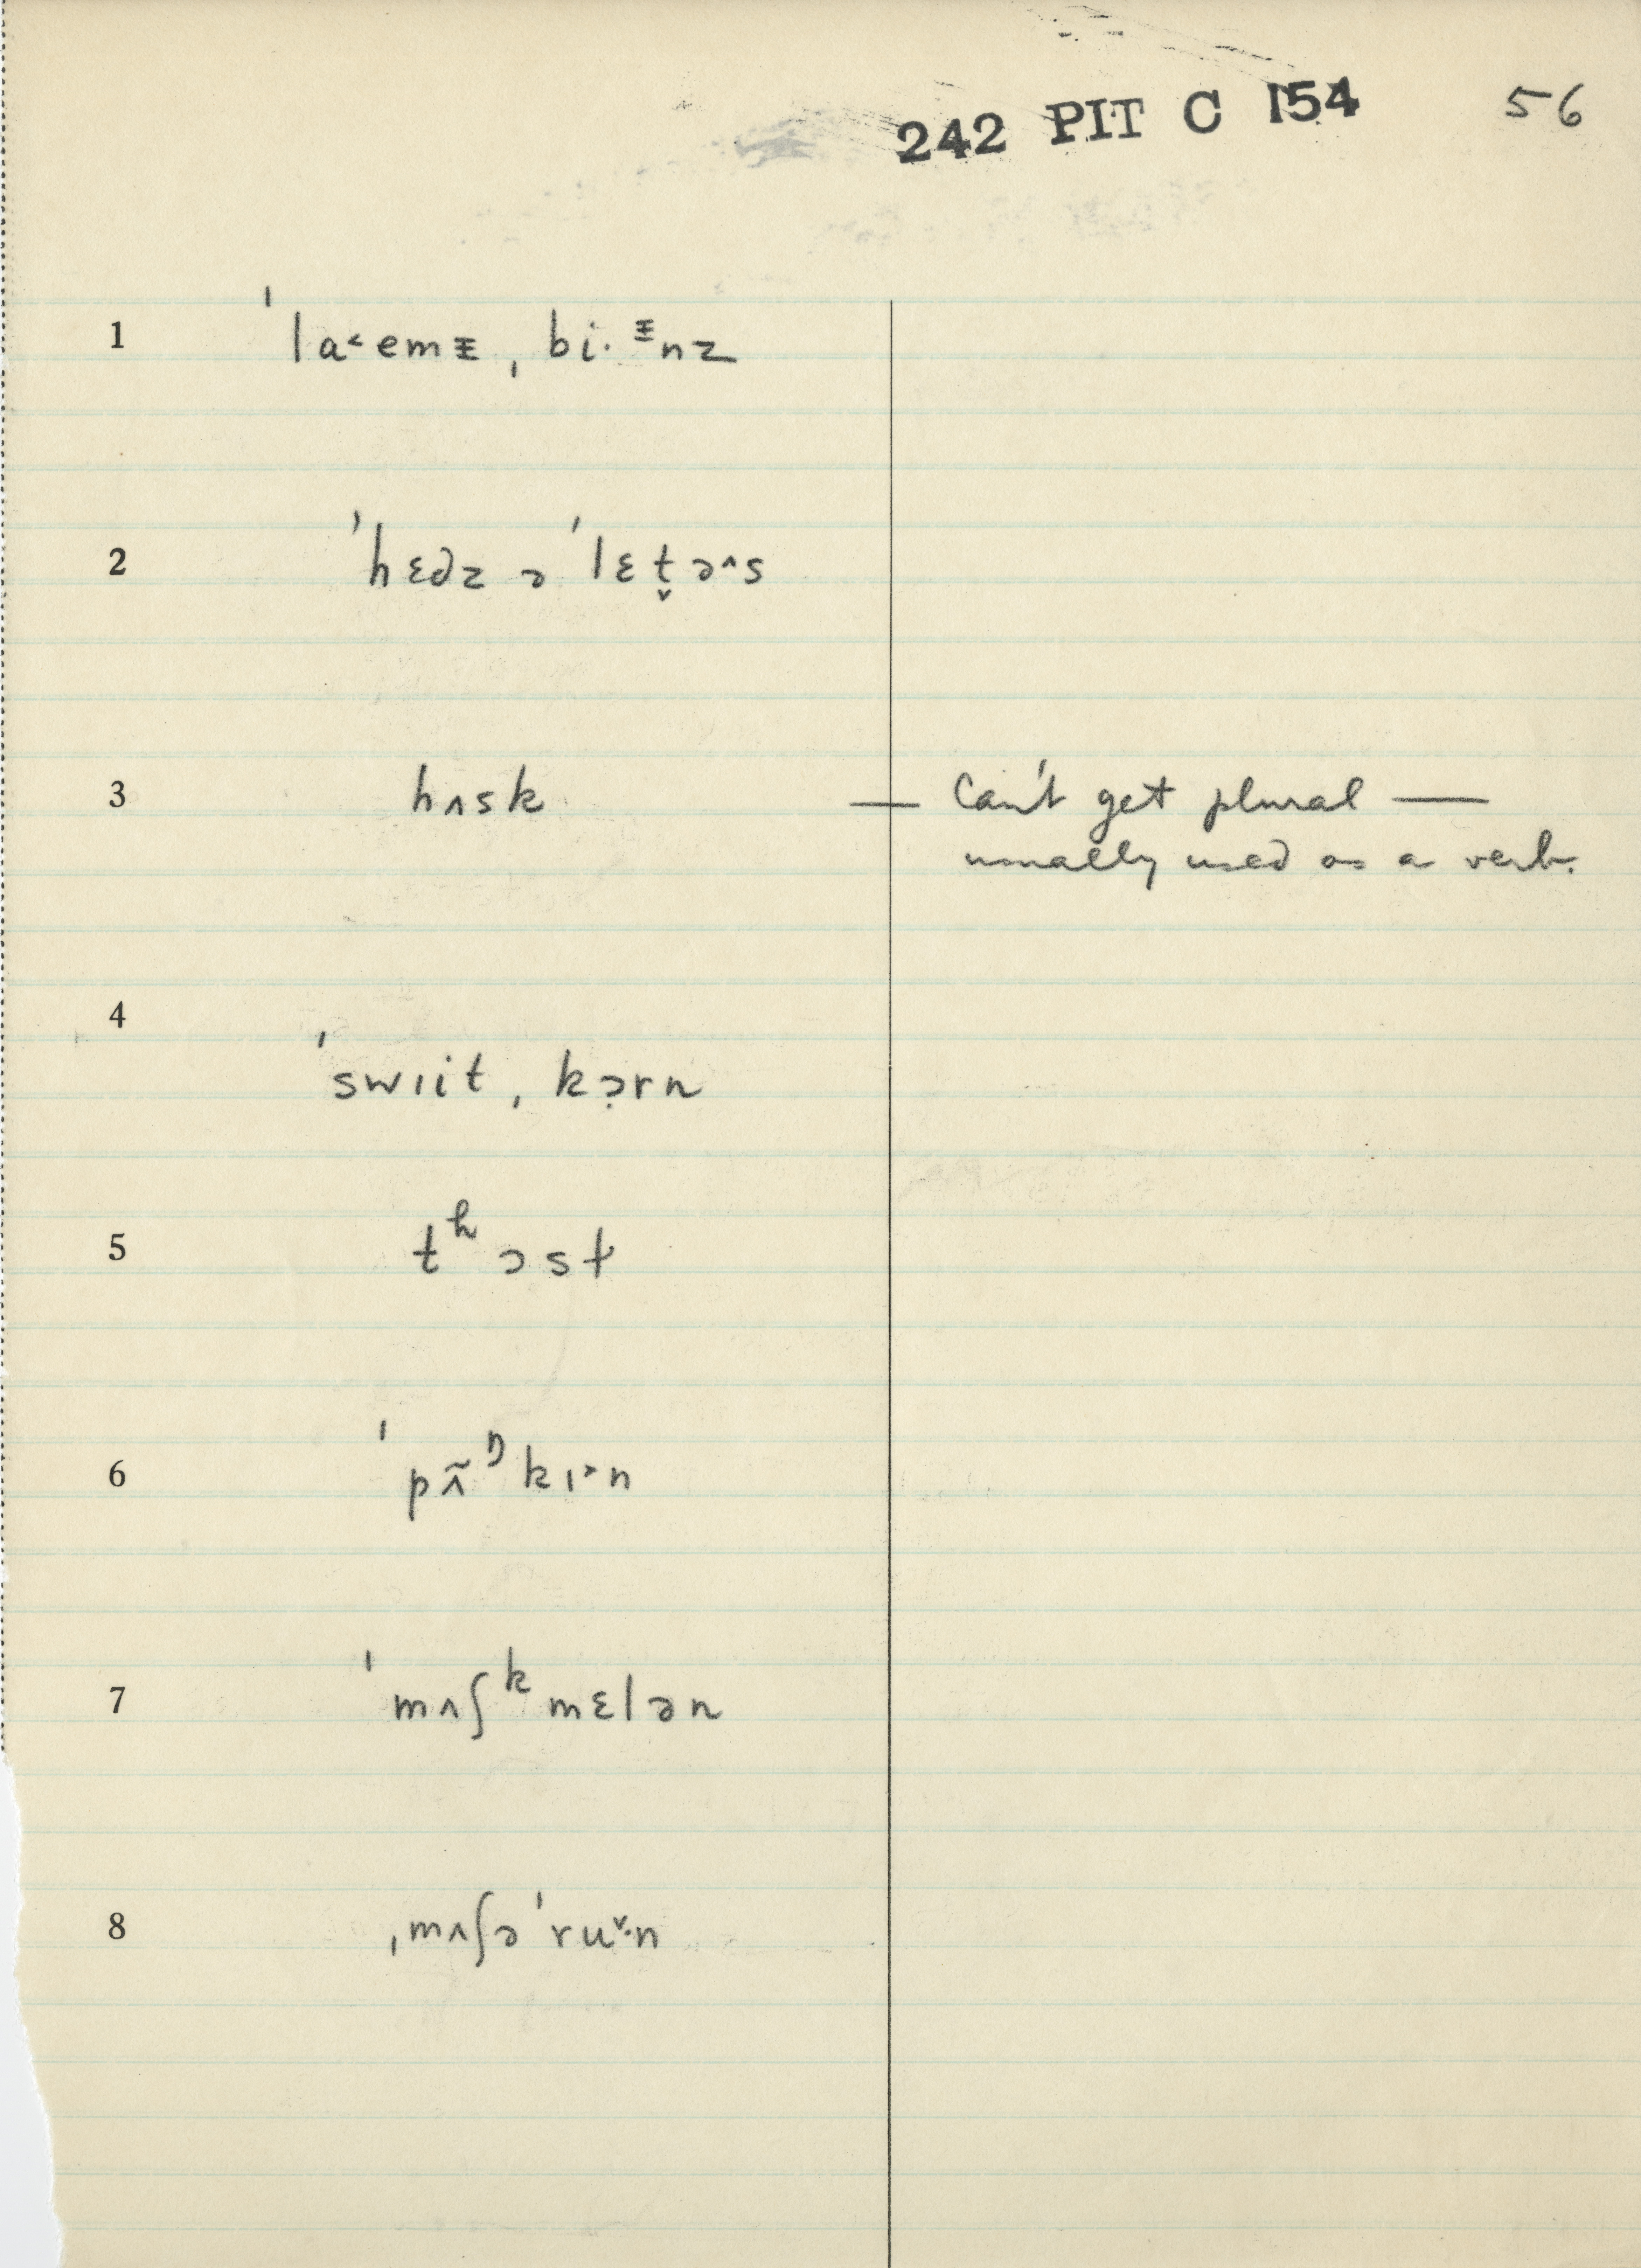 242 PIT C 154 56
1 ˈla˂emᵻ ˌbi·ᵻnz
2 ˈhɛdz ə ˈlɛt̬ə^s
3 hʌsk — Can't get plural —
usually used as a verb.
4 ˈswıit ˌkɔ̣rn
5 tʰɔst
6 ˈpʌ̃ᵑkɪ˃n
7 ˈmʌʃᵏmɛlən
8 ˌmʌʃəˈru˅·n